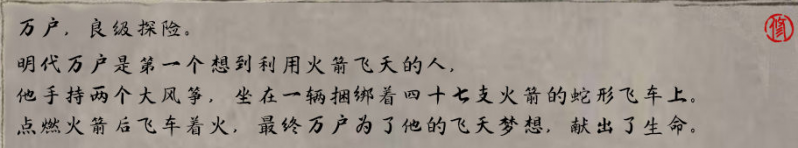 万户，良级探险。
修
明代万户是第一个想到利用火箭飞天的人，
他手持两个大风筝，坐在一辆捆绑着四十七支火箭的蛇形飞车上。
点燃火箭后飞车着火，最终万户为了他的飞天梦想，献出了生命。